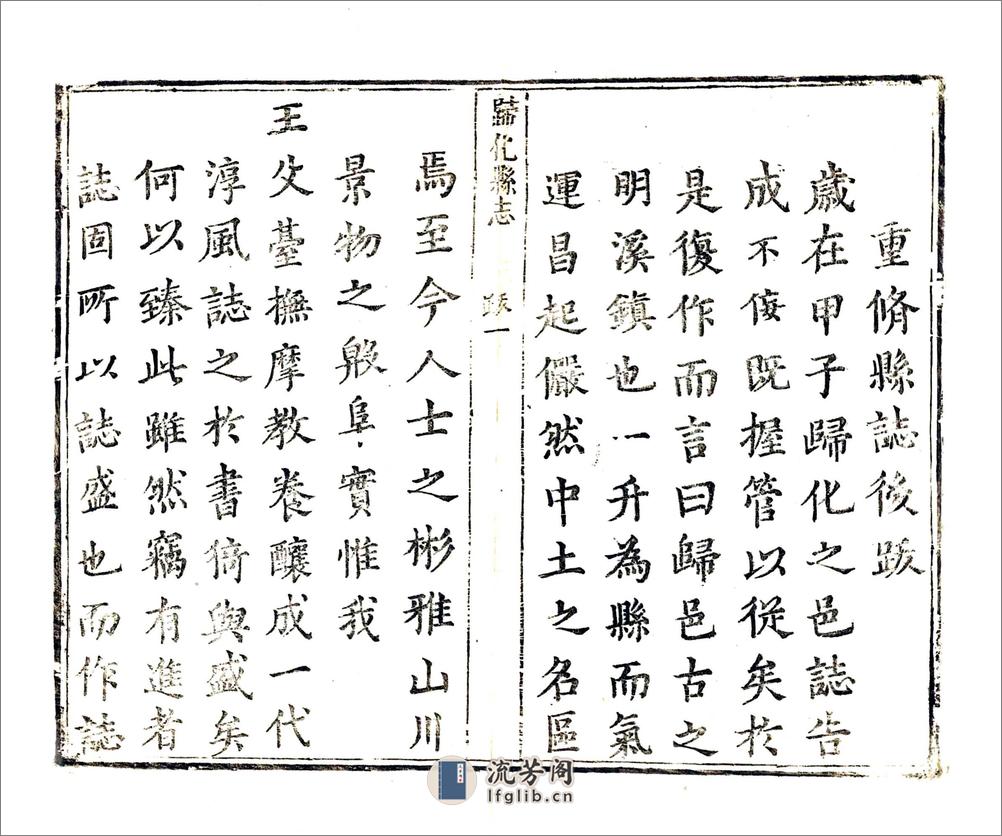 重脩縣誌後跋
歲在甲子歸化之邑誌告
成不佞既握管以從矣於
是復作而言曰歸邑古之
明溪鎮也一升為縣而氣
運昌起儼然中土之名區
歸化縣志 跋 一
焉至今人士之彬雅山川
景物之殷阜實惟我
王父臺撫摩教養釀成一代
淳風誌之於書猗與盛矣
何以臻此雖然竊有進者
誌固所以誌盛也而作誌
流芳阁
lfglib.cn